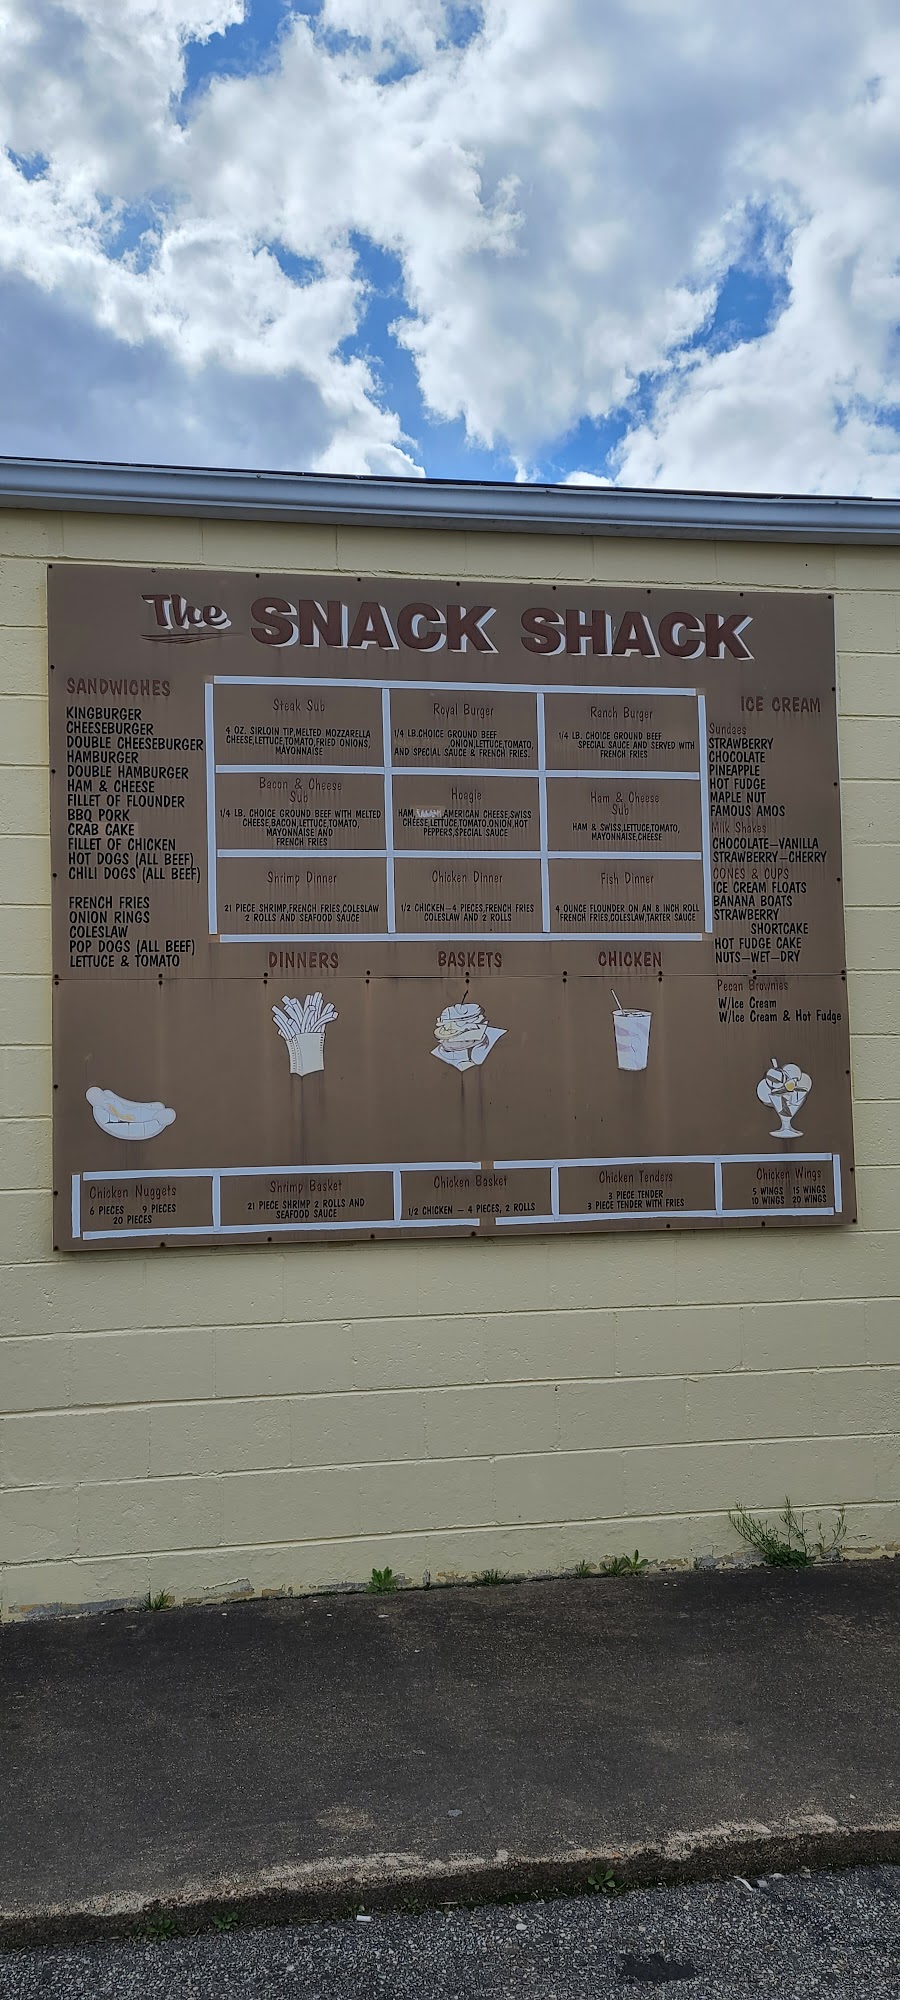 The SNACK SHACK
SANDWICHES
KINGBURGER
CHEESEBURGER
DOUBLE CHEESEBURGER
HAMBURGER
DOUBLE HAMBURGER
HAM & CHEESE
FILLET OF FLOUNDER
BBQ PORK
CRAB CAKE
FILLET OF CHICKEN
HOT DOGS (ALL BEEF)
CHILI DOGS (ALL BEEF)
FRENCH FRIES
ONION RINGS
COLESLAW
POP DOGS (ALL BEEF)
LETTUCE & TOMATO
Steak Sub
4 OZ. SIRLOIN TIP,MELTED MOZZARELLA
CHEESE,LETTUCE,TOMATO,FRIED ONIONS,
MAYONNAISE
Royal Burger
1/4 LB.CHOICE GROUND BEEF
,ONION,LETTUCE,TOMATO,
AND SPECIAL SAUCE & FRENCH FRIES.
Ranch Burger
1/4 LB. CHOICE GROUND BEEF
SPECIAL SAUCE AND SERVED WITH
FRENCH FRIES
Bacon & Cheese
Sub
1/4 LB. CHOICE GROUND BEEF WITH MELTED
CHEESE,BACON,LETTUCE,TOMATO,
MAYONNAISE AND
FRENCH FRIES
Hoagie
HAM, AMERICAN CHEESE,SWISS
CHEESE,LETTUCE,TOMATO,ONION,HOT
PEPPERS,SPECIAL SAUCE
Ham & Cheese
Sub
HAM & SWISS,LETTUCE,TOMATO,
MAYONNAISE,CHEESE
Shrimp Dinner
21 PIECE SHRIMP,FRENCH FRIES,COLESLAW
2 ROLLS AND SEAFOOD SAUCE
Chicken Dinner
1/2 CHICKEN—4 PIECES,FRENCH FRIES
COLESLAW AND 2 ROLLS
Fish Dinner
4 OUNCE FLOUNDER ON AN 8 INCH ROLL
FRENCH FRIES,COLESLAW,TARTER SAUCE
DINNERS
BASKETS
CHICKEN
ICE CREAM
Sundaes
STRAWBERRY
CHOCOLATE
PINEAPPLE
HOT FUDGE
MAPLE NUT
FAMOUS AMOS
Milk Shakes
CHOCOLATE—VANILLA
STRAWBERRY—CHERRY
CONES & CUPS
ICE CREAM FLOATS
BANANA BOATS
STRAWBERRY
SHORTCAKE
HOT FUDGE CAKE
NUTS—WET—DRY
Pecan Brownies
W/Ice Cream
W/Ice Cream & Hot Fudge
Chicken Nuggets
6 PIECES 9 PIECES
20 PIECES
Shrimp Basket
21 PIECE SHRIMP 2 ROLLS AND
SEAFOOD SAUCE
Chicken Basket
1/2 CHICKEN — 4 PIECES, 2 ROLLS
Chicken Tenders
3 PIECE TENDER
3 PIECE TENDER WITH FRIES
Chicken Wings
5 WINGS 15 WINGS
10 WINGS 20 WINGS